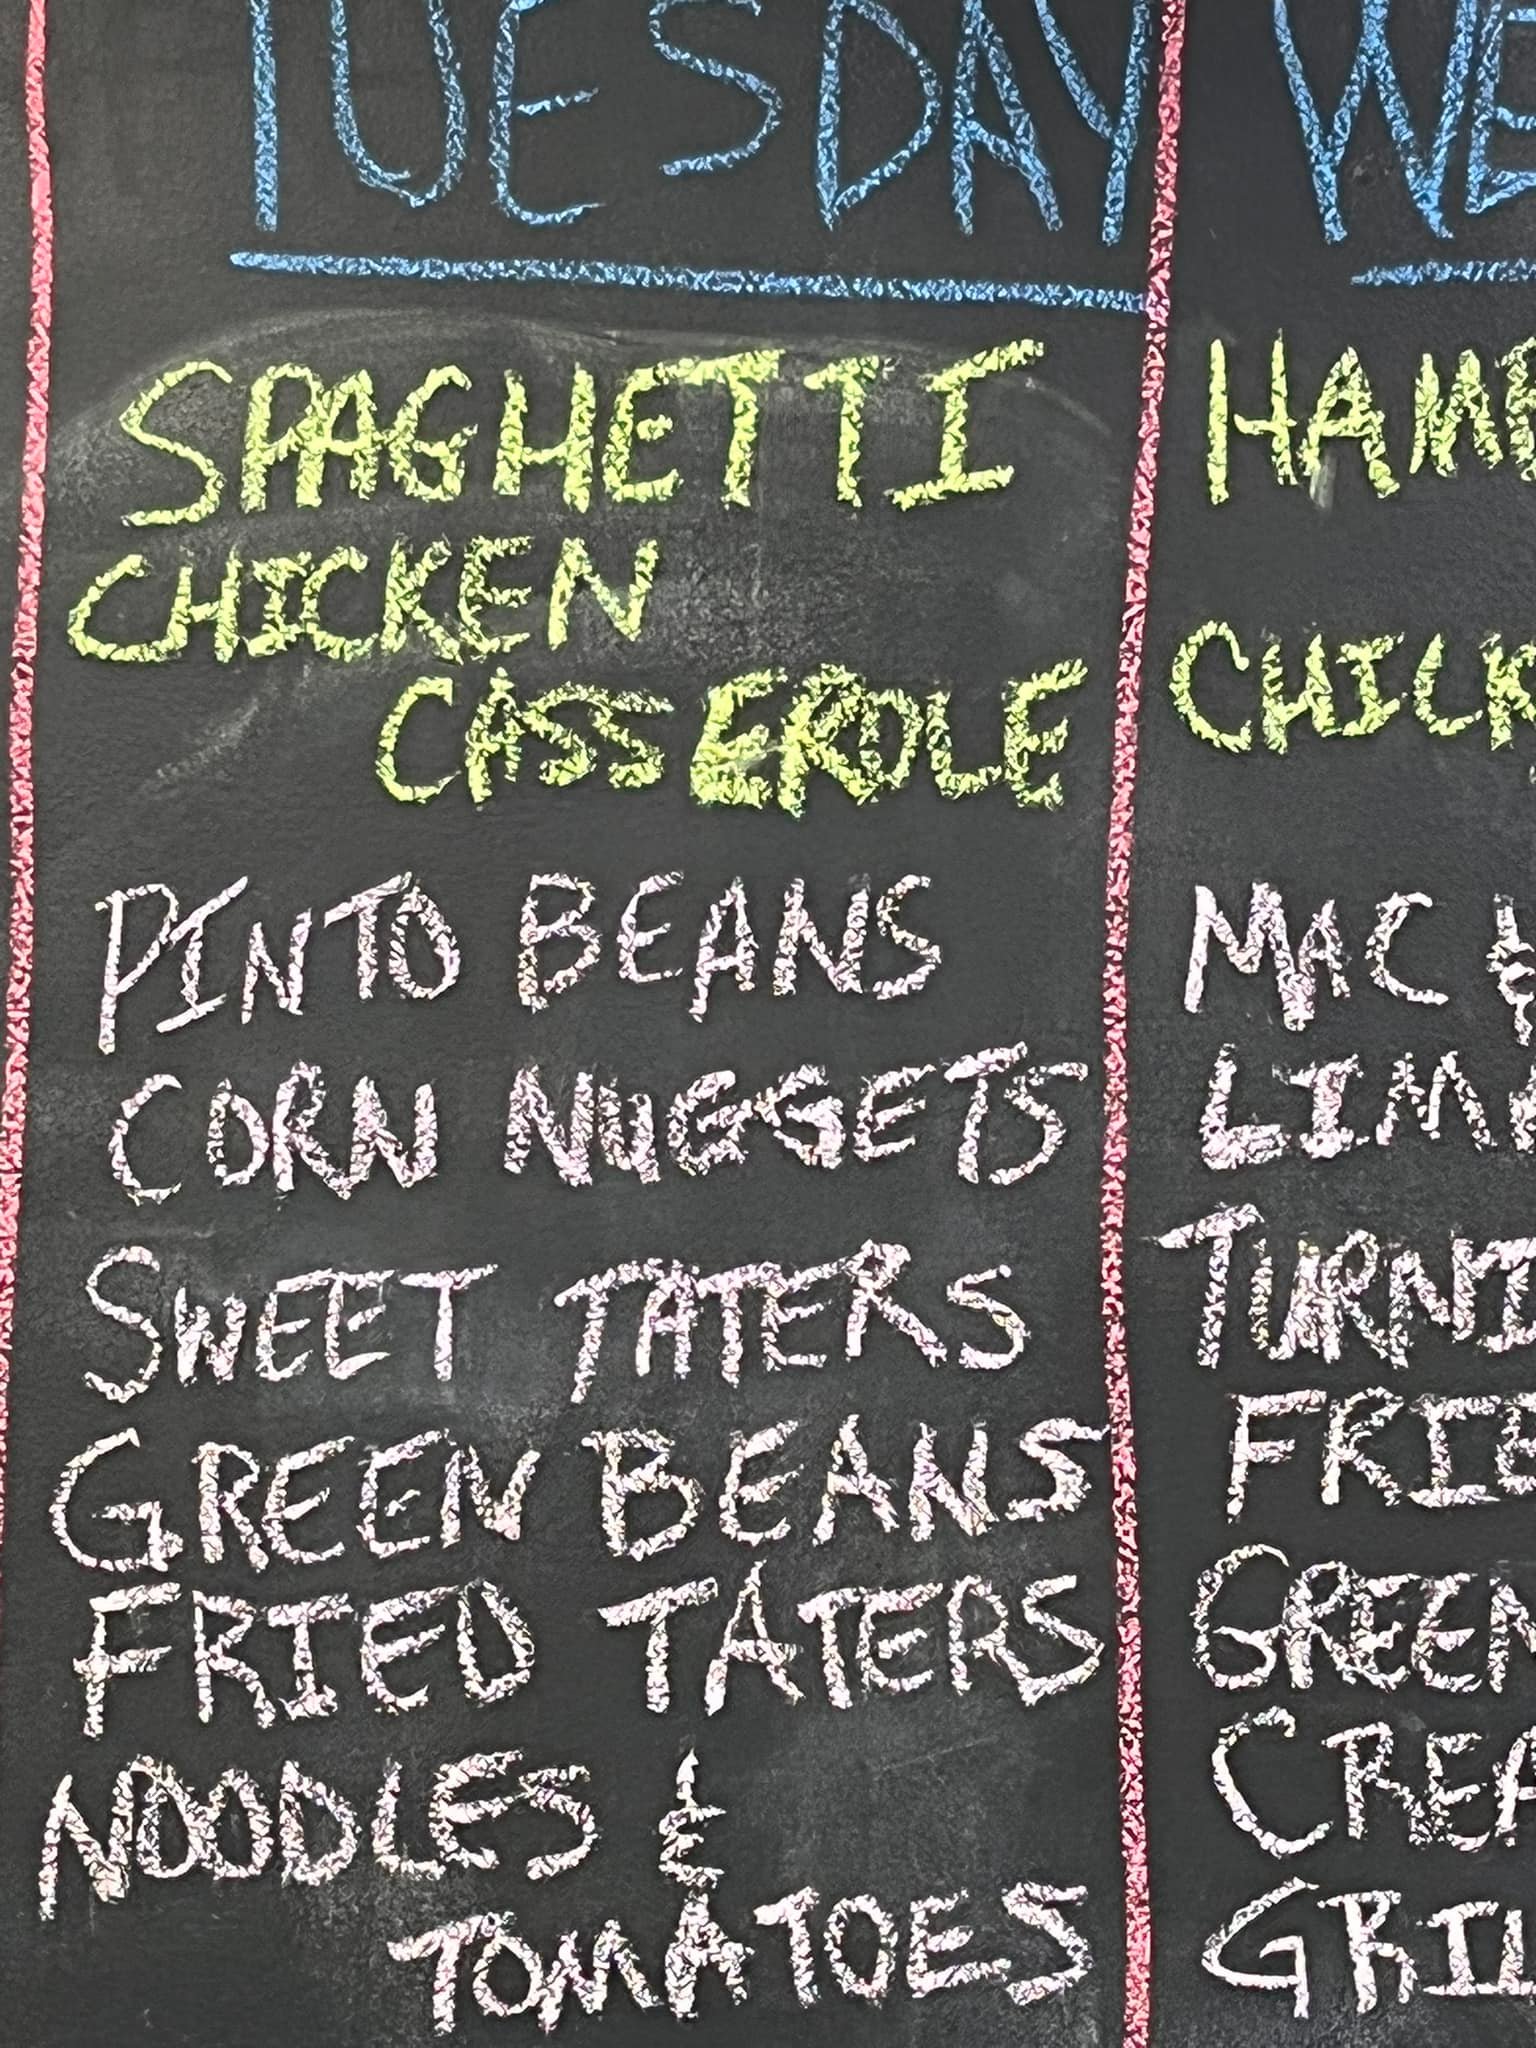 TUESDAY
SPAGHETTI
CHICKEN
CASSEROLE
PINTO BEANS
CORN NUGGETS
SWEET TATERS
GREEN BEANS
FRIED TATERS
NOODLES &
TOMATOES
WE
HAM
CHICK
MAC &
LIM
TURNI
FRIE
GREEN
CREA
GRIL